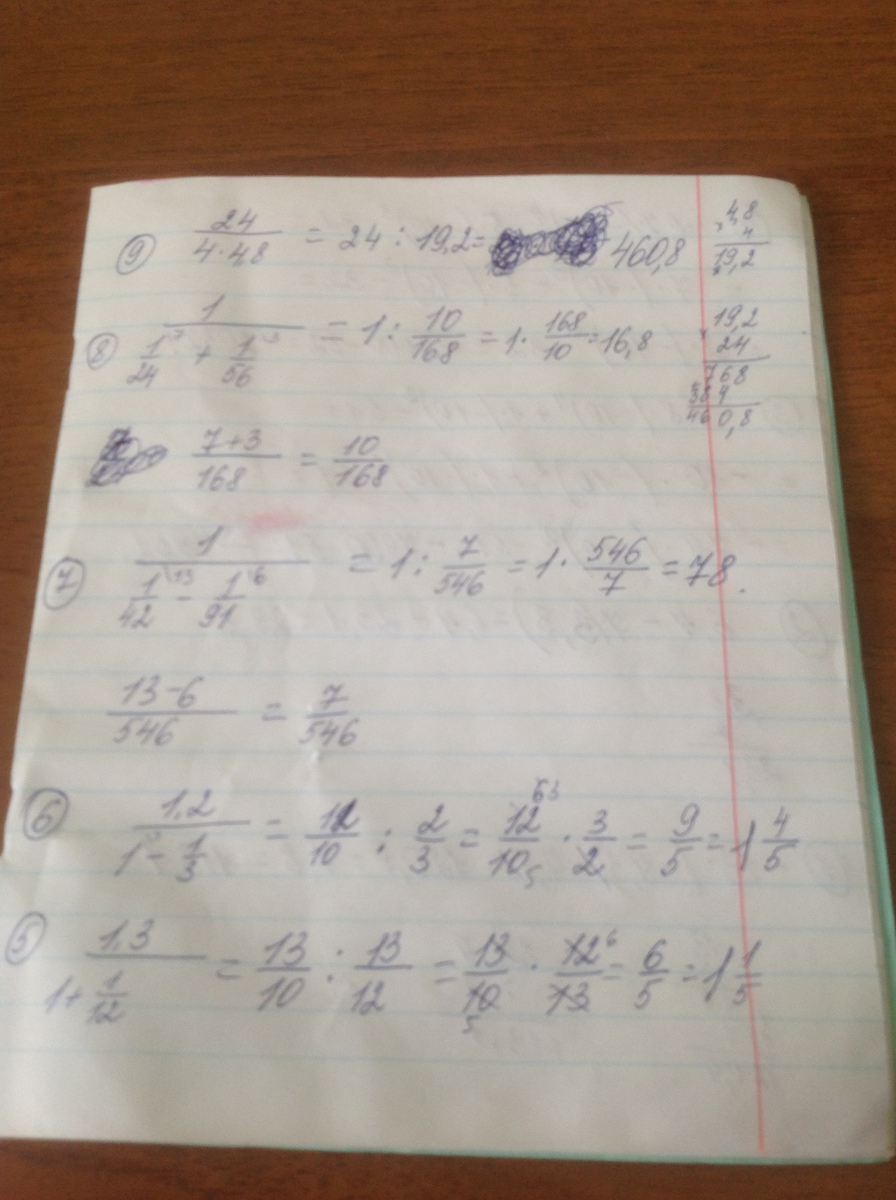 ⑨ 24/(4·48) = 24 : 19,2 = 460,8
4,8
× 4
19,2
⑧ 1/(1/24 + 1/56) = 1 : 10/168 = 1 · 168/10 = 16,8
×19,2
24
768
384
460,8
(7+3)/168 = 10/168
⑦ 1/(1/42 − 1/91) = 1 : 7/546 = 1 · 546/7 = 78.
(13−6)/546 = 7/546
⑥ 1,2/(1 − 1/3) = 12/10 : 2/3 = 12/10 · 3/2 = 9/5 = 1 4/5
⑤ 1,3/(1 + 1/12) = 13/10 : 13/12 = 13/10 · 12/13 = 6/5 = 1 1/5